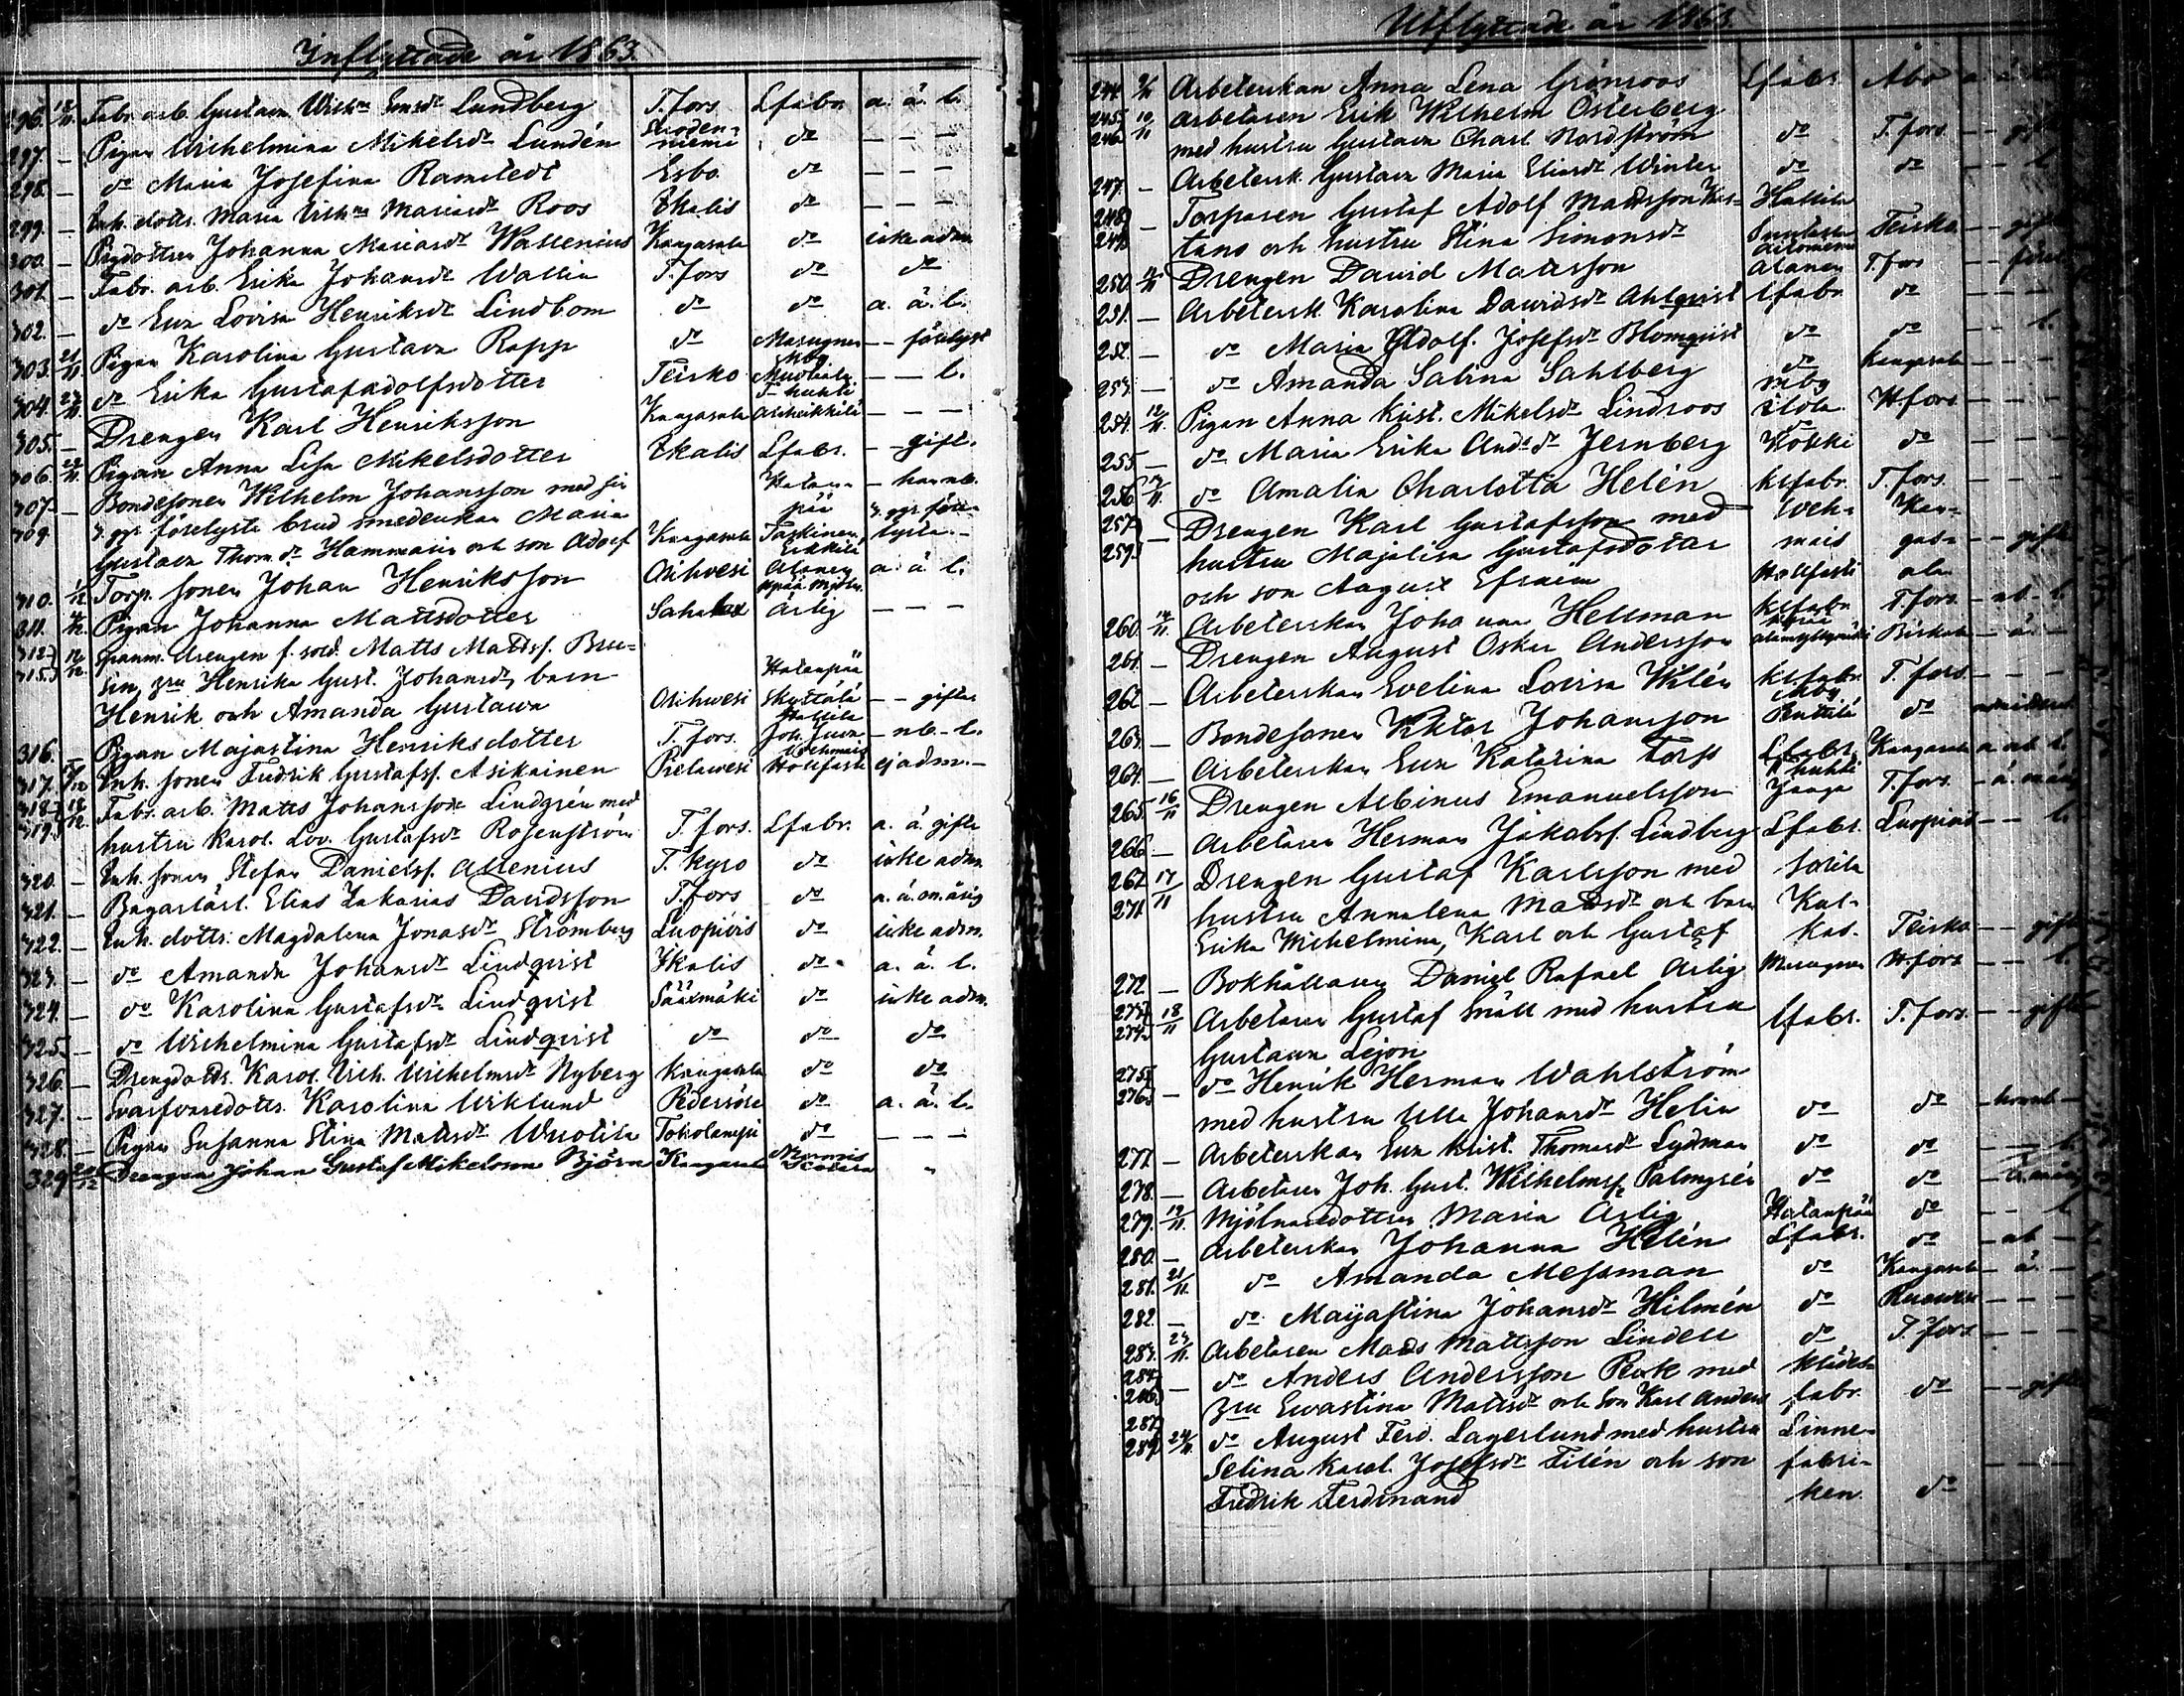 Inflyttade år 1863.
296. 18/11. Fabr. arb. Gustava Wilh:a Lundberg T.fors Lfabr. a. ä. l.
297. — Pigan Wilhelmina Mikelsd:r Lundén Suodenniemi d:o — — —
298. — d:o Maria Josefina Ramstedt Esbo d:o — — —
299. — Inh. dottr. Maria Vilh:a Mariasd:r Roos Ikalis d:o — — —
300. — Pigdottren Johanna Mariasd:r Wallenius Kangasala d:o icke adm.
301. — Fabr. arb. Erika Johansd:r Wallin T.fors d:o d:o
302. — d:o Eva Lovisa Henriksd:r Lindbom d:o d:o a. ä. l.
303. 21/11 Pigan Karolina Gustava Rapp d:o Masugnen — — förelyst
304. 23/11. d:o Erika Gustafadolfsdotter Teisko — — l.
305. — Drengen Karl Henriksson Kangasala — — —
306. Pigan Anna Lisa Mikelsdotter Ikalis Lfabr. — gift.
307. — Bondesonen Wilhelm Johansson med sin Hatanpää
309. 3. ggr förelysta brud enkan Maria 3. ggr förelysta. —
Gustava Thom. d:r Hammarin och son Adolf Kangasala Taskinen,
310. 1/12. Torp. sonen Johan Henriksson Orihvesi a. ä. l.
311. Pigan Johanna Mattsdotter Sahalax Ärlig — — —
312. drengen f. sold. Matts Mattss. Bru-
315. sin, Henrika Gust. Johansd:r, barn Hatanpää
Henrik och Amanda Gustava Orihvesi Skyttälä — — gifta
316. — Pigan Majastina Henriksdotter T.fors. — nb. — l.
317. Inh. sonen Fredrik Gustafss. Asikainen Pielavesi ej adm. —
318. 18/12. Fabr. arb. Matts Johansson Lindgrén med
319. hustru Karol. Lov. Gustafsd:r Rosenström T.fors. Lfabr. a. ä. gifta
320. — Inh. sonen Stefan Danielss. Allenius T.kyro d:o icke adm
321. — Bagarlärl. Elias Zakarias Davidsson T.fors d:o
322. — Inh. dottr. Magdalena Jonasd:r Strömberg Luopiois d:o icke adm.
323. — d:o Amanda Johansd:r Lindqvist Ikalis d:o a. ä. l.
324. — d:o Karolina Gustafsd:r Lindqvist Sääxmäki d:o icke adm.
325. — d:o Wilhelmina Gustafsd:r Lindqvist d:o d:o d:o
326. — Drengdottr. Karol. Vilh. Wilhelmsd:r Nyberg Kangasala d:o d:o
327. — Svarfvaredottr. Karolina Wiklund Pedersöre d:o a. ä. l.
328. — Pigan Susanna Stina Mattsd:r Wuolila Toholampi d:o — — —
329 Drengen Johan Gustaf Mikelsson Björn Kangasala
Utflyttade år 1863.
244. Arbeterskan Anna Lena Grönroos Lfabr. Åbo
245 10/11 Arbetaren Erik Wilhelm Österberg
246. med hustru Gustava Charl Nordström d:o T.fors. — — gift
247. — Arbetersk. Gustava Maria Eliasd:r Winter d:o d:o — — l.
248 — Torparen Gustaf Adolf Mattsson Hallila
249. och hustru Stina Simonsd:r Teisko — — gift
250. Drengen David Mattsson Alanen T.fors
251. — Arbetersk Karolina Davidsd:r Ahlqvist Lfabr d:o — — —
252. — d:o Maria Adolf. Josefsd:r Blomqvist d:o d:o — — l.
253. — d:o Amanda Sabina Sahlberg d:o Kangasala — — —
254. 12/11. Pigan Anna Krist. Mikelsd:r Lindroos H.fors — — —
255 — d:o Maria Erika And:s d:r Jernberg d:o — — —
256. d:o Amalia Charlotta Helén Klfabr. T.fors. — — —
257. — Drengen Karl Gustafsson med Weh- Kan-
259. hustru Majalisa Gustafsdotter mais gas- — — gift
och son August Efraim Hollfasti ala
260. 14/11. Arbeterskan Johanna Hellman Klfabr T.fors. — nb. l.
261. — Drengen August Oskar Andersson Birkala — ä. —
262 — Arbeterskan Evelina Lovisa Wilén Klfabr. T.fors. — — —
263. — Bondesonen Viktor Johansson Penttilä d:o
264. — Arbeterskan Eva Katarina Torp Lfabr. Kangasala a nb l.
265. 16/11 Drengen Albinus Emanuelsson T.fors. — ä.
266 — Arbetaren Herman Jakobss. Lindberg Lfabr. Luopiois — — l.
267. 17/11 Drengen Gustaf Karlsson med
271. hustru Annalena Mattsd:r och barn
Erika Wilhelmina, Karl och Gustaf Teisko — — gift
272 — Bokhållaren Daniel Rafael Ärlig Masugnen H.fors — — l.
273 18/11 Arbetaren Gustaf Snäll med hustru Lfabr. T.fors. — — gift
274. Gustava Lejon
275. d:o Henrik Herman Wahlström
276. — med hustru Ulla Johansd:r Helin d:o d:o
277. — Arbeterskan Eva Krist. Thomasd:r Lydman d:o d:o — — l.
278. — Arbetaren Joh. Gust. Wilhelmss. Palmgrén d:o d:o
279. 19/11. Mjölnaredottren Maria Ärlig Hatanpää d:o — — l.
280. — Arbeterskan Johanna Helén Lfabr. d:o — nb —
281. 21/11. d:o Amanda Messman d:o Kangasala — ä. —
282. — d:o Maijastina Johansd:r Hilmén d:o Ruovesi — — —
283. 23/11. Arbetaren Matts Mattsson Lindell d:o T.fors — — —
284. — d:o Anders Andersson Penk med Klädes
286. Evastina Mattsd:r och Son Karl Anders fabr. d:o — — gift
287. 24/11. d:o August Ferd. Lagerlund med hustru Linne-
289. Selina Karol. Josefsd:r Tilén och son fabri-
Fredrik Ferdinand ken. d:o